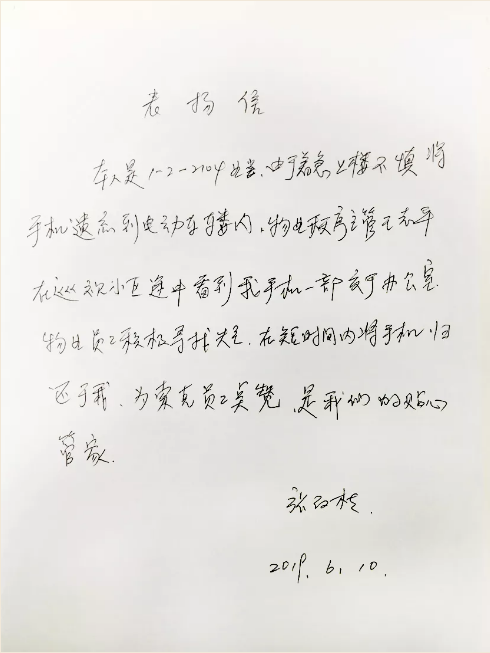 表扬信
本人是1-2-2104业主.由于着急上楼不慎将
手机遗忘到电动车楼内.物业秩序主管王志平
在巡视小区途中看到我手机一部交于办公室.
物业员工积极寻找失主.在短时间内将手机归
还于我.为索克员工点赞.是我们的贴心
管家.
张
2019.6.10.